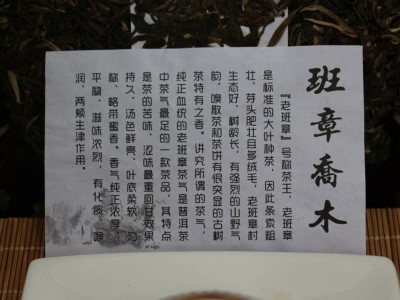 班章喬木
『老班章』号称茶王，老班章
是标准的大叶种茶，因此条索粗
壮，芽头肥壮且多绒毛，老班章村
生态好，树龄长，有强烈的山野气
韵，嗅散茶和茶饼有很突显的古树
茶特有之香。讲究所谓的茶气，
纯正血统的老班章茶气是普洱茶
中茶气最足的一款茶品，其特点
是茶的苦味，涩味最重回甘效果
持久，汤色鲜亮，叶底柔软，匀
称，略带蜜香。香气纯正浓厚，
平稳，滋味浓烈，有化痰，喉
润，两颊生津作用。